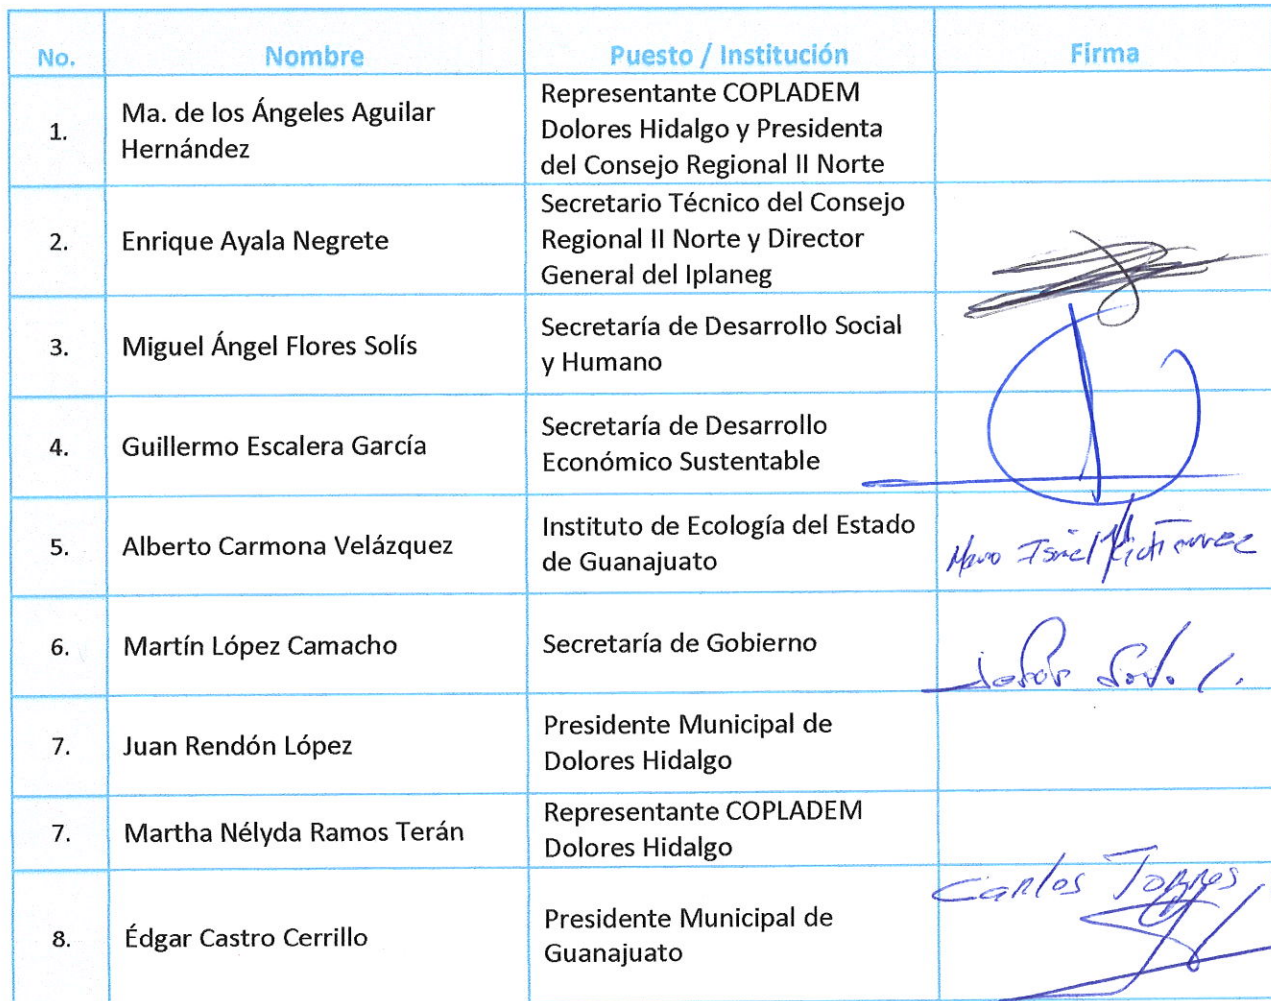 No. Nombre Puesto / Institución Firma
1. Ma. de los Ángeles Aguilar
Hernández
Representante COPLADEM
Dolores Hidalgo y Presidenta
del Consejo Regional II Norte
2. Enrique Ayala Negrete
Secretario Técnico del Consejo
Regional II Norte y Director
General del Iplaneg
3. Miguel Ángel Flores Solís
Secretaría de Desarrollo Social
y Humano
4. Guillermo Escalera García
Secretaría de Desarrollo
Económico Sustentable
5. Alberto Carmona Velázquez
Instituto de Ecología del Estado
de Guanajuato
6. Martín López Camacho
Secretaría de Gobierno
7. Juan Rendón López
Presidente Municipal de
Dolores Hidalgo
7. Martha Nélyda Ramos Terán
Representante COPLADEM
Dolores Hidalgo
Carlos Torres
8. Édgar Castro Cerrillo
Presidente Municipal de
Guanajuato